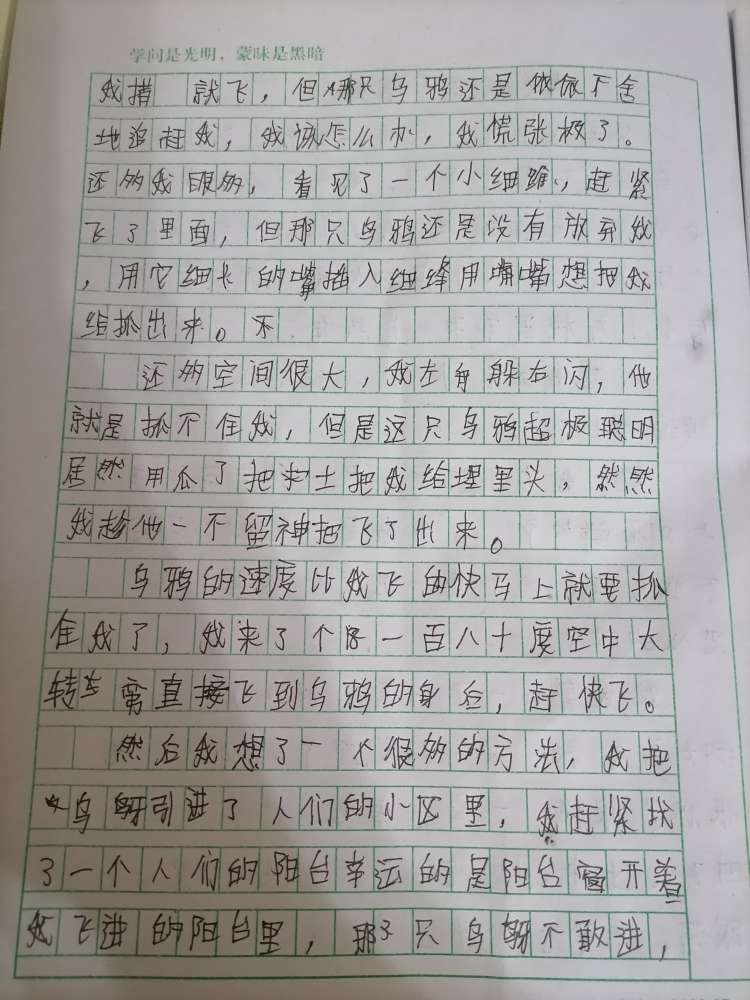 学问是光明，蒙昧是黑暗
我措 就飞，但那只乌鸦还是依依不舍
地追赶我，我该怎么办，我慌张极了。
还的我眼的，看见了一个小细雖，赶紧
飞了里面，但那只乌鸦还是没有放弃我
，用它细长的嘴插入细缝用嘴嘴想把我
给抓出来。不
还的空间很大，我左身躲右闪，他
就是抓不住我，但是这只乌鸦超极聪明
居然用瓜了把土把我给埋里头，然然
我趁他一不留神把飞了出来。
乌鸦的速度比我飞的快马上就要抓
住我了，我来了个一百八十度空中大
转弯直接飞到乌鸦的身后，赶快飞。
然后我想了一个很的的方法，我把
乌呀引进了人们的小区里，我赶紧找
了一个人们的阳台幸运的是阳台窗开着
我飞进的阳台里，那只乌呀不敢进，